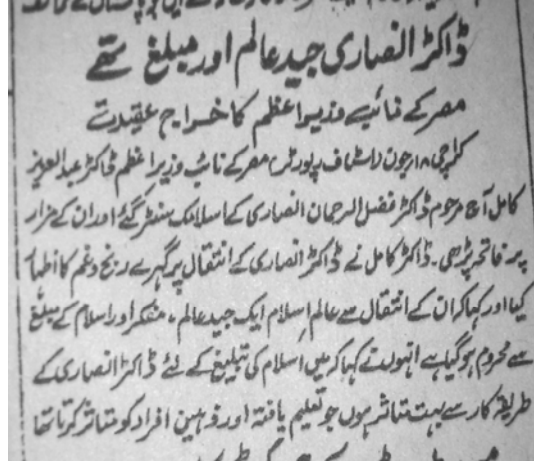 ڈاکٹر انصاری جید عالم اور مبلغ تھے
مصر کے نائب وزیر اعظم کا خراج عقیدت
کراچی ۱۸ جون (اسٹاف رپورٹر) مصر کے نائب وزیر اعظم ڈاکٹر عبدالعزیز
کامل آج مرحوم ڈاکٹر فضل الرحمان انصاری کے اسلامک سنٹر گئے اور ان کے مزار
پر فاتحہ پڑھی۔ ڈاکٹر کامل نے ڈاکٹر انصاری کے انتقال پر گہرے رنج و غم کا اظہار
کیا اور کہا کہ ان کے انتقال سے عالم اسلام ایک جید عالم، مفکر اور اسلام کے مبلغ
سے محروم ہو گیا ہے انہوں نے کہا کہ میں اسلام کی تبلیغ کے لئے ڈاکٹر انصاری کے
طریقہ کار سے بہت متاثر ہوں جو تعلیم یافتہ اور ذہین افراد کو متاثر کرتا تھا